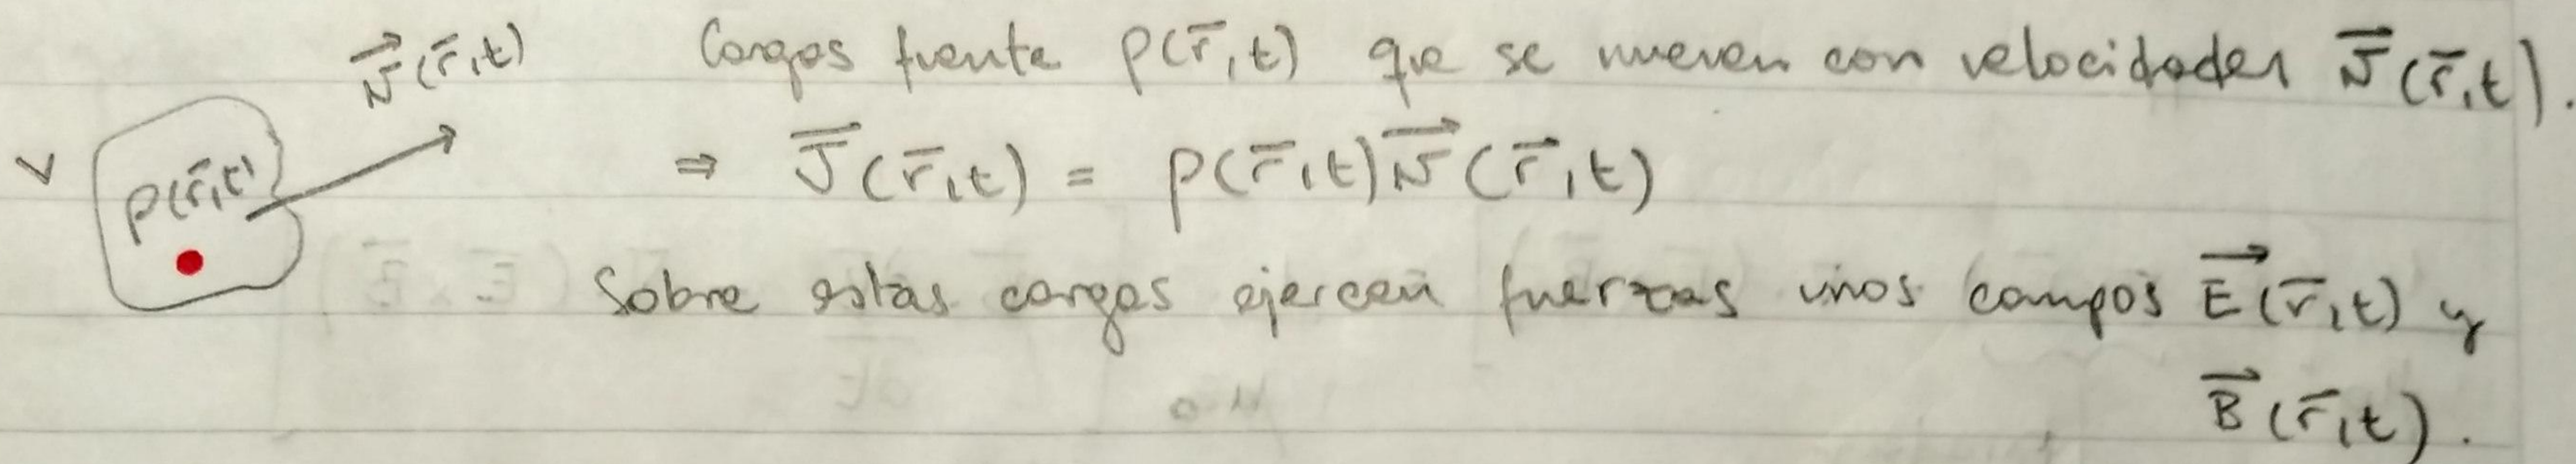 v⃗(r̄,t) Cargas fuente ρ(r̄,t) que se mueven con velocidades v⃗(r̄,t).
V ρ(r̄,t) ⇒ J⃗(r̄,t) = ρ(r̄,t)v⃗(r̄,t)
Sobre estas cargas ejercen fuerzas unos campos E⃗(r̄,t) y
B⃗(r̄,t).